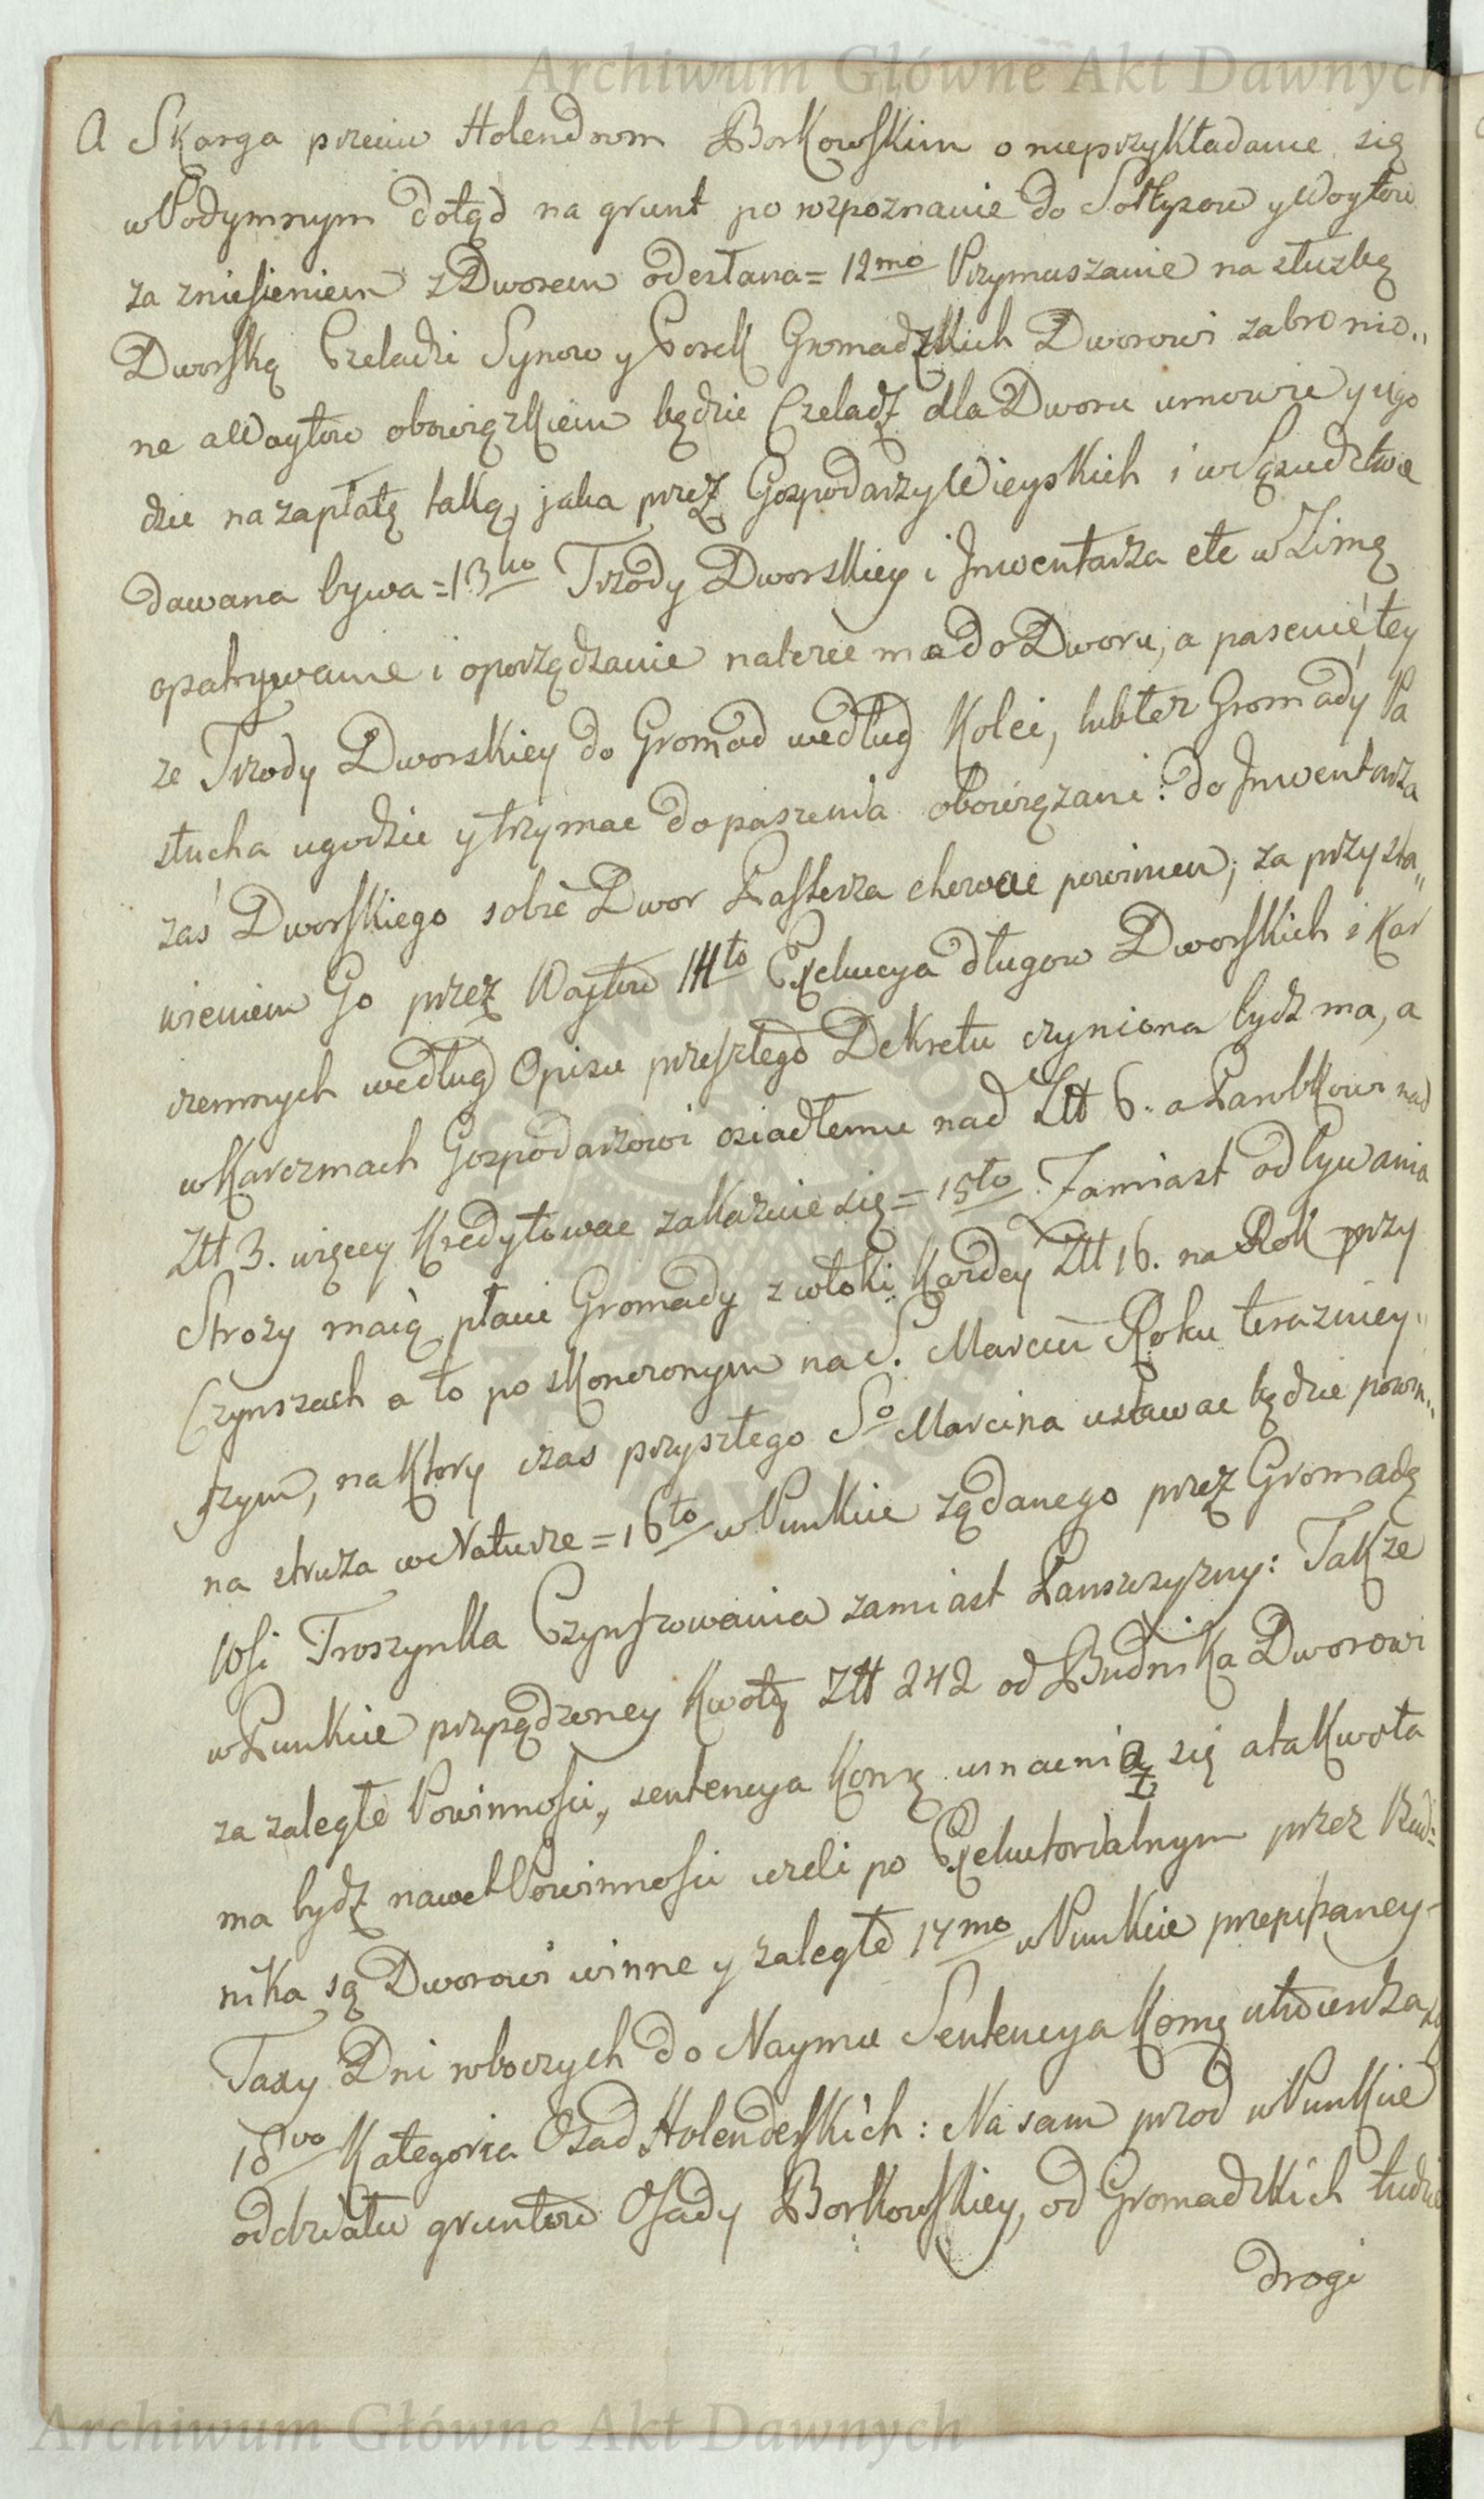 Archiwum Główne Akt Dawnych
A Skarga przeciw Holendrom Borkowskim o nieprzykładanie się
w Podymnym dotąd na grunt po rozpoznanie do Sołtysow y Woytow
za zniesieniem z Dworem odesłana = 12mo Przymuszanie na służbę
Dworską Czeladzi Synow y Corek Gromadzkich Dworowi zabronio„
ne a Woytow obowiązkiem będzie Czeladź dla Dworu umowic y ugo
dzic na zapłatę taką, jaka przez Gospodarzy Wieyskich i w Sąsiedztwie
dawana bywa = 13tio Trzody Dworskiey i Inwentarza etc w Zimę
opatrywanie i oporządzanie należec ma do Dworu, a pasenie tey
że Trzody Dworskiey do Gromad według Kolei, lub też Gromady Pa
stucha ugodzic y trzymac do paszenia obowiązani: do Inwentarza
zaś Dworskiego sobie Dwor Pasterza chowac powinien; za przysta„
wieniem Go przez Woytow 14to Exekucya długow Dworskich i Kar
czemnych według Opisu przeszłego Dekretu czyniona bydz ma, a
w Karczmach Gospodarzowi osiadłemu nad Złł 6. a Parobkowi nad
Złł 3. więcey Kredytowac zakazuie się = 15to Zamiast odbywania
Stroży maią płacic Gromady z włoki Kazdey Złł 16. na Rok przy
Czynszach a to po skonczonym na S. Marcin Roku terazniey„
szym, na Ktory czas przyszłego So Marcina ustawac będzie powin„
na struża w Naturze = 16to w Punkcie żądanego przez Gromadę
Wsi Troszynka Czynszowania zamiast Panszczyzny: Takze
w Punkcie przysądzoney Kwoty Złł 242 od Budnika Dworowi
za zaległe Powinności, sentencya Komę umacnia się a ta Kwota
ma bydź nawet Powinności jezeli po Exekutorialnym przez Bud=
nika są Dworowi winne y zaległe 17mo w Punkcie przepisaney
Taxy Dni roboczych do Naymu Sentencya Komę utwierdza się
18vo Kategoria Osad Holenderskich: Na sam przod w Punkcie
oddziału gruntow Osady Borkowskiey, od Gromadzkich tudziez
drogi
Archiwum Główne Akt Dawnych